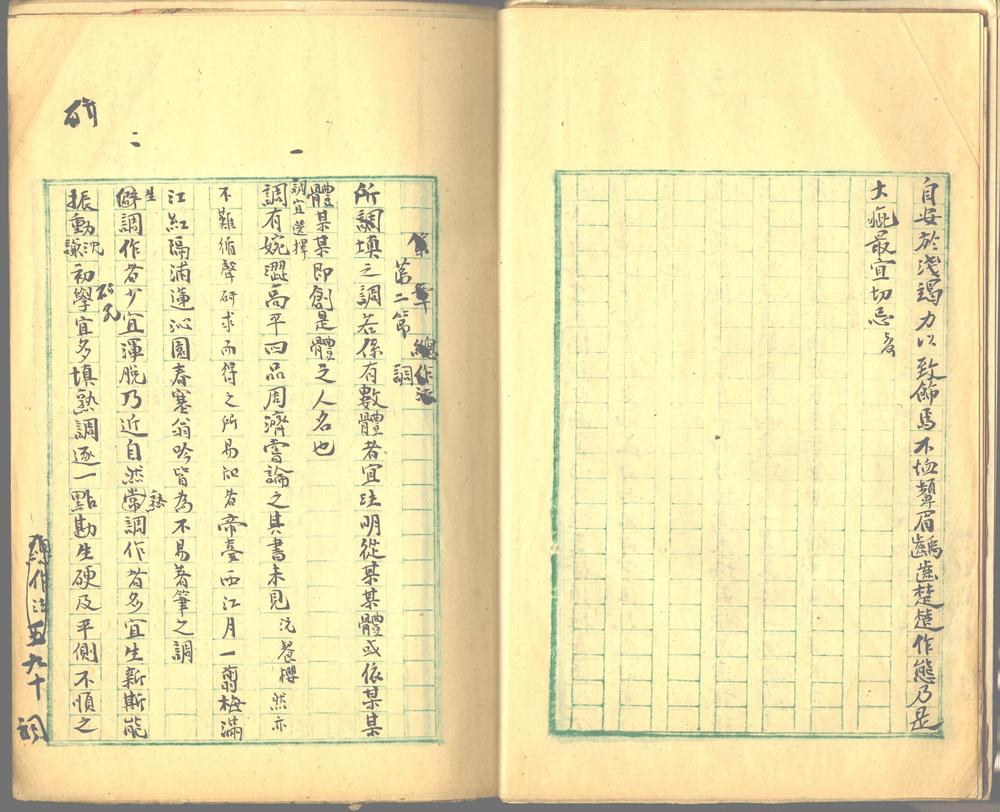 自安於淺竭力以致飾焉不恤顰眉齲齒楚楚作態乃是
大疵最宜切忌
章 總作法
第二節 調
所謂填之調若係有數體者宜注明從某某體或依某某
體某某即創是體之人名也
調宜選擇
調有婉澀高平四品周濟嘗論之其書未見 況餐櫻 然亦
不難循聲研求而得之所易知者帝臺西江月一翦梅滿
江紅隔浦蓮沁園春塞翁吟皆為不易著筆之調
僻調作者少宜渾脫乃近自然常調作者多宜生新斯能
生
熟
振動 況 初學宜多填熟調逐一點勘生硬及平側不順之
總作法
五 九十
詞
二
一